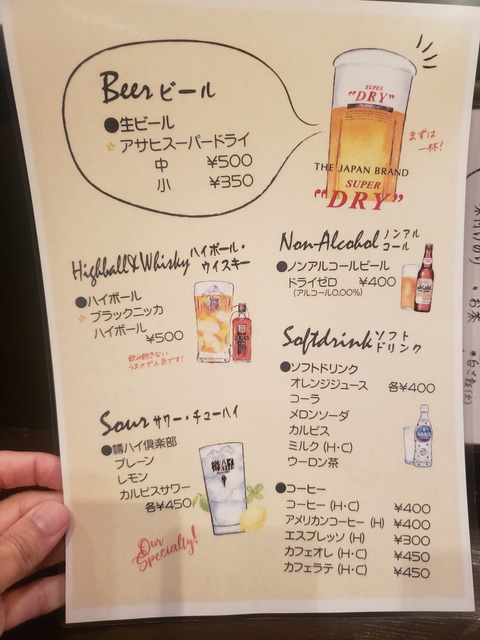 Beer ビール
●生ビール
アサヒスーパードライ
中 ¥500
小 ¥350
SUPER
"DRY"
まずは
一杯!
THE JAPAN BRAND
SUPER
"DRY"
Highball&Whisky ハイボール・
ウイスキー
●ハイボール
ブラックニッカ
ハイボール
¥500
飲み飽きない
うまさで人気です!
Non-Alcohol ノンアル
コール
●ノンアルコールビール
ドライゼロ ¥400
(アルコール0.00%)
Softdrink ソフト
ドリンク
●ソフトドリンク
オレンジジュース 各¥400
コーラ
メロンソーダ
カルピス
ミルク(H・C)
ウーロン茶
Sour サワー・チューハイ
●樽ハイ倶楽部
プレーン
レモン
カルピスサワー
各¥450
Our
Specialty!
●コーヒー
コーヒー(H・C) ¥400
アメリカンコーヒー(H) ¥400
エスプレッソ(H) ¥300
カフェオレ(H・C) ¥450
カフェラテ(H・C) ¥450
お茶